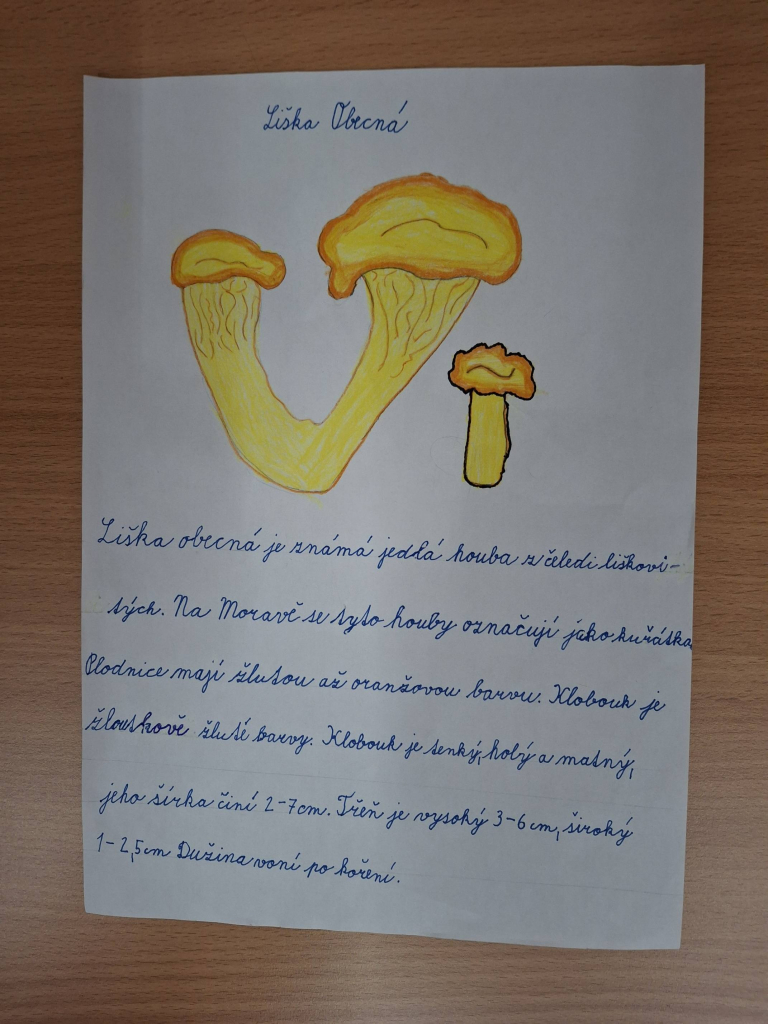 Liška Obecná
Liška obecná je známá jedlá houba z čeledi liškovi-
tých. Na Moravě se tyto houby označují jako kuřátka.
Plodnice mají žlutou až oranžovou barvu. Klobouk je
žloutkově žluté barvy. Klobouk je tenký, holý a matný,
jeho šírka činí 2-7cm. Třěň je vysoký 3-6cm, široký
1-2,5cm Dužina voní po koření.